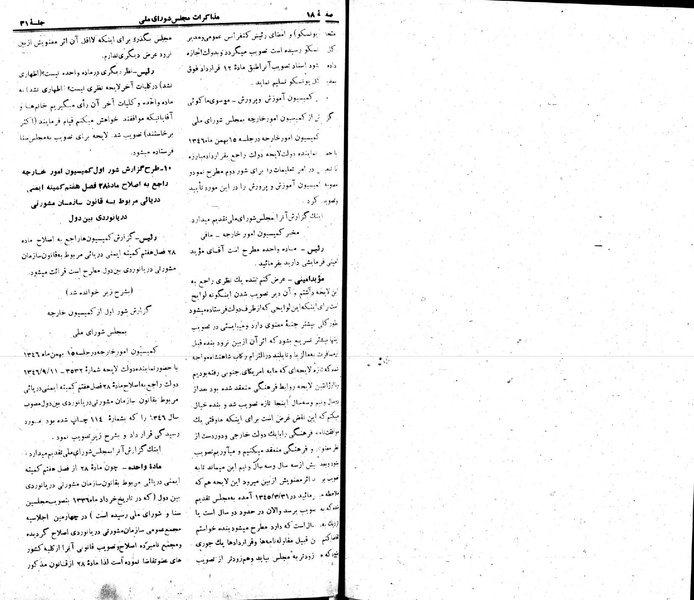 صفحهٔ ۱۸
مذاکرات مجلس شورای ملی
جلسهٔ ۳۱
یونسکو) و امضای رئیس کنفرانس عمومی ومدیر
یونسکو رسیده است تصویب میگردد وبدولت اجازه
داده شود اسناد تصویب آنرا طبق مادهٔ ۱۲ قرارداد فوق
یونسکو تسلیم نماید.
کمیسیون آموزش و پرورش - موسوی ماکوئی
گزارش از کمیسیون امورخارجه بمجلس شورای ملی
کمیسیون امورخارجه درجلسه ۱۵ بهمن ماه ۱۳۴۶
نماینده دولت لایحه دولت راجع بقراردادمبارزه
در امر تعلیمات را برای شور دوم مطرح نمودو
مصوبه کمیسیون آموزش و پرورش را در این مورد تأیید
وتصویب کرد.
اینک گزارش آنرا بمجلس شورای ملی تقدیم میدارد
مخبر کمیسیون امور خارجه - مافی
رئیس - ماده واحده مطرح است آقای مؤید
امینی فرمایشی دارید بفرمائید.
مؤیدامینی - عرض کنم بنده یک نظری راجع به
این لایحه داشتم و آن دیر تصویب شدن اینگونه لوایح
است برای اینکه این لوایحی که ازطرف دولت فرستاده میشود
بطور کلی بیشتر جنبهٔ معنوی دارد ومیبایستی در تصویب
اینها بیشتر تسریع بشود که اثر آن از بین نرود بنده قبل
لایحه روابط فرهنگی منعقد شده بود بعد از
دو سال ونیم وسه سال اینجا تازه تصویب شد و بنده خیال
میکنم که این نقض غرض است برای اینکه ماوقتی یک
موافقت‌نامه فرهنگی را با یک دولت خارجی ودوردست از
نظر معنوی و فرهنگی منعقد میکنیم و میآوریم تصویب
شود وبعد بیش از سه سال ونیم این میماند تا به
تصویب برسد اثر معنویش از بین میرود این لایحه هم که
ملاحظه میفرمائید در ۱۳۴۵/۳/۳۱ آمده به مجلس تقدیم
شده تصویب برسد والان در حدود دو سال است یا
سال است که دارد مطرح میشود بنده خواستم
این قبیل مقاوله نامه‌ها وقراردادها یک جوری
زودتر به مجلس بیاید وهم زودتر از تصویب
مجلس بگذرد برای اینکه لااقل آن اثر معنویش ازبین
نرود عرض دیگری ندارم.
رئیس - نظر دیگری درماده واحده نیست؟ (اظهاری
نشد) درکلیات آخر لایحه نظری نیست؟ (اظهاری نشد) به
ماده واحده و کلیات آخر آن رأی میگیریم خانمها و
آقایانیکه موافقند خواهش میکنم قیام فرمایند (اکثر
برخاستند) تصویب شد. لایحه برای تصویب به مجلس سنا
فرستاده میشود.
۱۰ - طرح گزارش شور اول کمیسیون امور خارجه
راجع به اصلاح مادهٔ ۲۸ فصل هفتم کمیته ایمنی
دریائی مربوط به قانون سازمان مشورتی
دریانوردی بین دول
رئیس - گزارش کمیسیون‌ها راجع به اصلاح ماده
۲۸ فصل هفتم کمیته ایمنی دریائی مربوط به قانون سازمان
مشورتی دریانوردی بین دول مطرح است قرائت میشود.
(بشرح زیر خوانده شد)
گزارش شور اول از کمیسیون خارجه
بمجلس شورای ملی
کمیسیون امور خارجه درجلسه ۱۵ بهمن ماه ۱۳۴۶
با حضور نماینده دولت لایحه شمارهٔ ۳۵۳۲ - ۱۳۴۶/۹/۱۱
دولت راجع به اصلاح مادهٔ ۲۸ فصل هفتم کمیته ایمنی دریائی
مربوط بقانون سازمان مشورتی دریانوردی بین دول مصوب
سال ۱۳۴۶ را که بشمارهٔ ۱۱۴ چاپ شده بود مورد
رسیدگی قرار داد و بشرح زیر تصویب نمود.
اینک گزارش آنرا بمجلس شورای ملی تقدیم میدارد.
مادهٔ واحده - چون مادهٔ ۲۸ از فصل هفتم کمیته
ایمنی دریائی مربوط بقانون سازمان مشورتی دریانوردی
بین دول (که در تاریخ خرداد ماه ۱۳۳۶ بتصویب مجلسین
سنا و شورای ملی رسیده است) در چهارمین اجلاسیه
مجمع عمومی سازمان مشورتی دریانوردی اصلاح گردیده
ومجمع نامبرده اصلاح وتصویب قانونی آنرا از کلیه کشور
های عضو تقاضا نموده است لذا مادهٔ ۲۸ از قانون مذکور